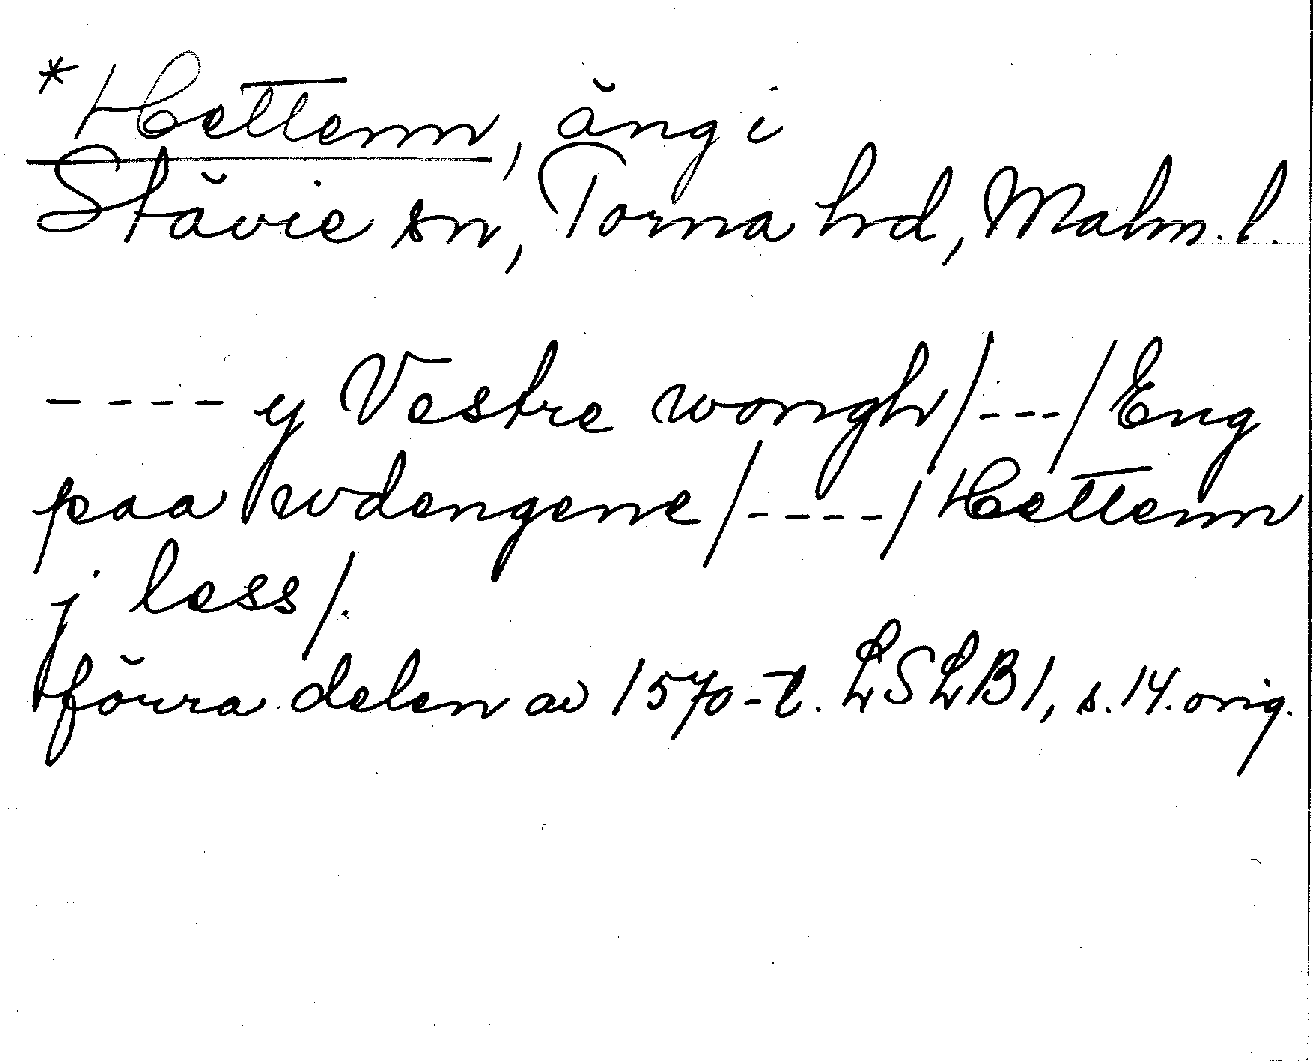 *Hettenn, äng i
Stävie sn, Torna hd, Malm. l.
---- y Vestre wongh/---/Eng
paa wdengene/----/Hettenn
j less/.
förra delen av 1570-t. LSLB1, s.14. orig.